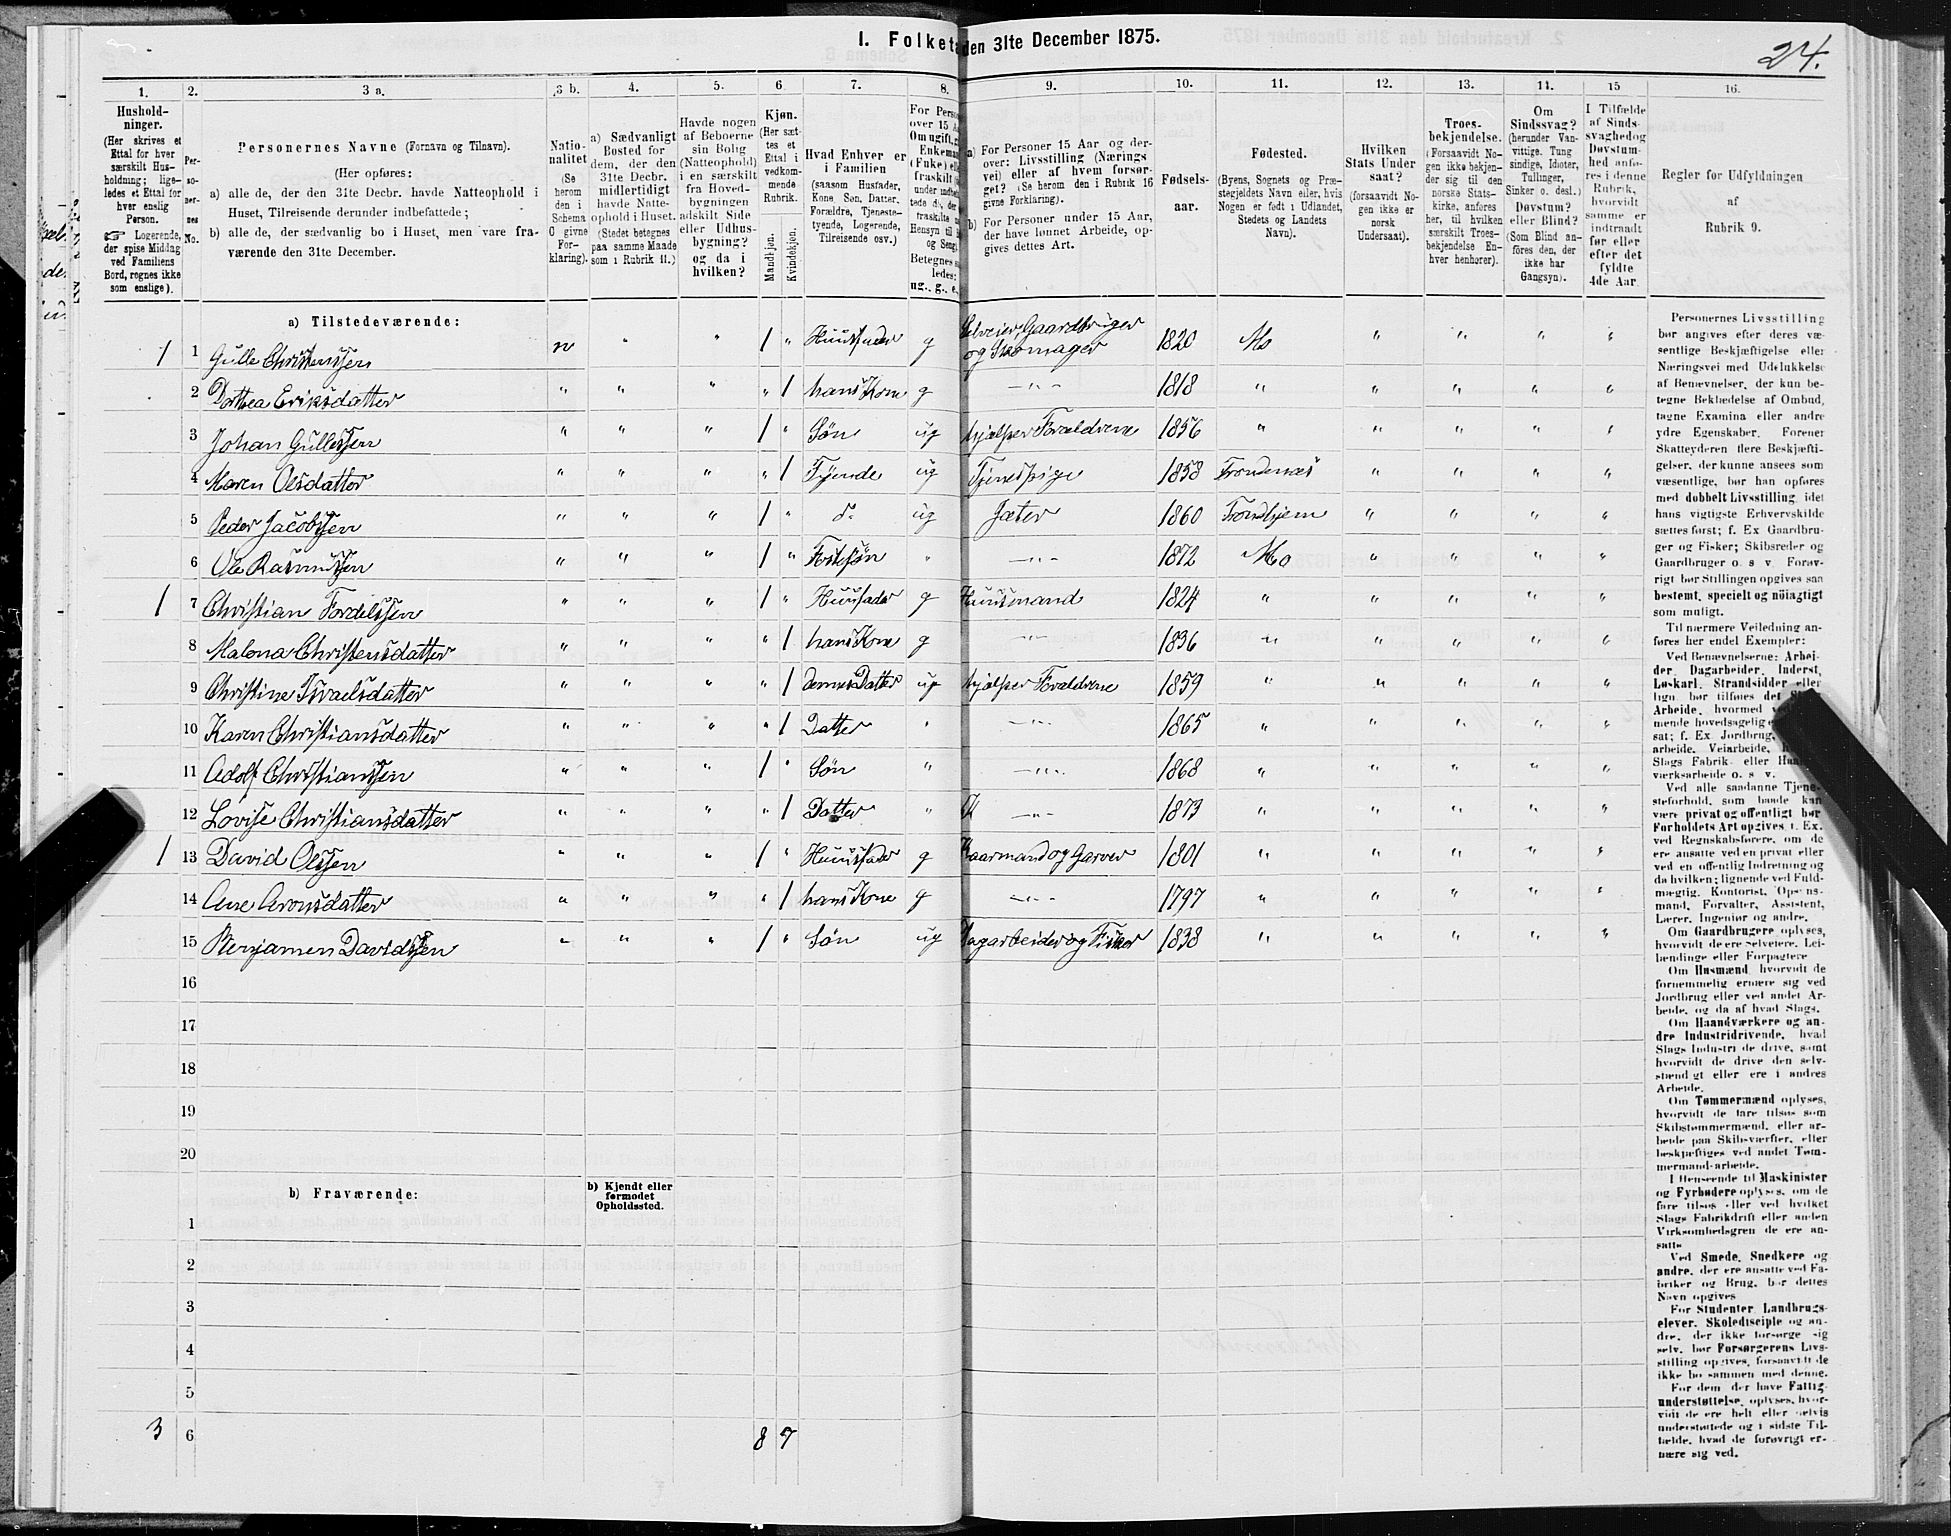 I. Folketa
den 31te December 1875.
24.
1.
2.
3 a.
3 b.
4.
5.
6.
7.
8.
9.
10.
11.
12.
13.
14.
15
16.
Hushold-
ninger.
(Her skrives et
Ettal for hver
særskilt Hus-
holdning; lige-
ledes et Ettal for
hver enslig
Person.
☞ Logerende,
der spise Middag
ved Familiens
Bord, regnes ikke
som enslige).
Per-
so-
ner-
nes
No.
Personernes Navne (Fornavn og Tilnavn).
(Her opføres:
a) alle de, der den 31te Decbr. havde Natteophold i
Huset, Tilreisende derunder indbefattede;
b) alle de, der sædvanlig bo i Huset, men vare fra-
værende den 31te December.
Natio-
nalitet
(Se
herom
den i
Schema
C givne
For-
klaring).
a) Sædvanligt
Bosted for
dem, der den
31te Decbr.
midlertidigt
havde Natte-
ophold i Huset.
(Stedet betegnes
paa samme Maade
som i Rubrik 11.)
Havde nogen
af Beboerne
sin Bolig
(Natteophold)
i en særskilt
fra Hoved-
bygningen
adskilt Side
eller Udhus-
bygning?
og da i
hvilken?
Kjøn.
(Her sæt-
tes et
Ettal i
vedkom-
mende
Rubrik.
Mandkjøn.
Kvindekjøn.
Hvad Enhver er
i Familien
(saasom Husfader,
Kone, Søn, Datter,
Forældre, Tjeneste-
tyende, Logerende,
Tilreisende osv.)
For Perso
over 15 A
Om ugift,
Enkema
(Fnke) elle
fraskilt
ug., g., e.,
a) For Personer 15 Aar og der-
over: Livsstilling (Nærings
vei) eller af hvem forsør-
get? (Se herom den i Rubrik 16
givne Forklaring).
b) For Personer under 15 Aar,
der have lønnet Arbeide, op-
gives dettes Art.
Fødsels-
aar.
Fødested.
(Byens, Sognets og Præ-
stegjeldets Navn eller, hvis
Nogen er født i Udlandet,
Stedets og Landets
Navn).
Hvilken
Stats Under
saat?
(forsaavidt No-
gen ikke er
norsk
Undersaat).
Troes-
bekjendelse.
(Forsaavidt No-
gen ikke bekjen-
der sig til den
norske Stats-
kirke, anføres
her, til hvilken
særskilt Troes-
bekjendelse En-
hver henhører).
Om
Sindssvag?
(herunder Van-
vittige, Tung
sindige, Idioter,
Tullinger,
Sinker o. desl.)
Døvstum?
eller Blind?
(Som Blind an-
føres den, der
ikke har
Gangsyn).
I Tilfælde
af Sinds-
svaghedog
Døvstum-
hed anfø-
res i denne
Rubrik,
hvorvidt
samme er
indtraadt
før eller
efter det
fyldte
4de Aar.
Regler for Udfyldningen
af
Rubrik 9.
a) Tilstedeværende:
1 1 Gulle Christenssen n " " 1 " Huusfader g Selveier, Gaardbruger og Skomager 1820 Mo " " " "
2 Dorthea Eriksdatter " " " " 1 hans Kone g —"— 1818 " " " " "
3 Johan Gullessen " " " 1 " Søn ug hjælper Forældrene 1856 " " " " "
4 Maren Olsdatter " " " " 1 Tyende ug Tjenestpige 1858 Trondenæs " " " "
5 Peder Jacobssen " " " 1 " do ug Jæter 1860 Trondhjem " " " "
6 Ole Rasmussen " " " 1 " Fostersøn " —"— 1872 Mo " " " "
1 7 Christian Fordelssen " " " 1 " Huusfader g Huusmand 1824 " " " " "
8 Malena Christensdatter " " " " 1 hans Kone g —"— 1836 " " " " "
9 Christine Israelsdatter " " " " 1 dennes Datter ug hjælper Forældrene 1859 " " " " "
10 Karen Christiansdatter " " " " 1 Datter " —"— 1865 " " " " "
11 Adolf Christianssen " " " 1 " Søn " —"— 1868 " " " " "
12 Lovise Christiansdatter " " " " 1 Datter " —"— 1873 " " " " "
1 13 David Olssen " " " 1 " Huusfader g Kaarmand og Garver 1801 " " " " "
14 Ane Aronsdatter " " " " 1 hans Kone g —"— 1797 " " " " "
15 Benjamen Davidssen " " " 1 " Søn ug Dagarbeider og Fisker 1838 " " " " "
16
17
18
19
20
b) Fraværende:
b) Kjendt eller
formodet
Opholdssted.
1
2
3
4
5
3 6 8 7
Personernes Livsstilling
bør angives efter deres væ-
sentlige Beskjæftigelse eller
Næringsvei med Udelukkelse
af Benævnelser, der kun be-
tegne Beklædelse af Ombud,
tagne Examina eller andre
ydre Egenskaber. Forener
Skatteyderen flere Beskjæfti-
gelser, der kunne ansees som
væsentlige, bør han opføres
med dobbelt Livsstilling, idet
hans vigtigste Erhvervskilde
sættes først; f. Ex Gaardbru-
ger og Fisker; Skibsreder og
Gaardbruger o. s v. Forøv-
rigt bør Stillingen opgives saa
bestemt, specielt og nöiagtigt
som muligt.
Til nærmere Veiledning an-
føres her endel Exempler:
Ved Benævnelserne: Arbej-
der, Dagarbeider, Inderst,
Løskarl, Strandsidder eller
lign. bør tilføies det
Arbeide, hvormed
mende hovedsagelig
sat; f. Ex Jordbrug,
arbeide, Veiarbeide,
Slags Fabrik- eller
værksarbeide o. s v.
Ved alle saadanne Tjene-
steforhold, som baade kan
være privat og offentligt bør
Forholdets Art opgives, f. Ex.
ved Regnskabsførere, om de
ere ansatte ved en privat eller
ved en offentlig Indretning og
da hvilken; lignende ved Fuld-
mægtig, Kontorist, Opsyns-
mand, Forvalter, Assistent,
Lærer, Ingeniør og andre.
Om Gaardbrugere oplyses,
hvorvidt de ere Selveiere, Lei-
lændinge eller Forpagtere
Om Husmænd, hvorvidt de
fornemmelig ernære sig ved
Jordbrug eller ved andet Ar-
beide, og da af hvad Slags.
Om Haandværkere og an-
dre Industridrivende, hvad
Slags Industri de drive, samt
hvorvidt de drive den selv-
stændigt eller ere i andres
Arbeide.
Om Tømmermænd oplyses,
hvorvidt de fare tilsøs som
Skibstømmermænd, eller ar-
beide paa Skibsværfter, eller
beskjæftiges ved andet Tøm-
mermand-arbeide.
I Henseende til Maskinister
og Fyrbødere oplyses, om de
fare tilsøs eller ved hvilket
Slags Fabrikdrift eller anden
Virksomhedsgren de ere an-
satte
Ved Smede, Snedkere og
andre, der ere ansatte ved Fa-
briker og Brug, bør dettes
Navn opgives
For Studenter, Landbrugs-
elever, Skoledisciple og an-
dre, der ikke forsørge sig
selv, bør Forsørgerens Livs-
stilling opgives, forsaavidt de
ikke bo sammen med denne.
For dem, der have Fattig-
understøttelse, oplyses, hvor-
vidt de ere helt eller delvis
understøttede og i sidste Til-
fælde, hvad de forøvrigt er-
nære sig ved.